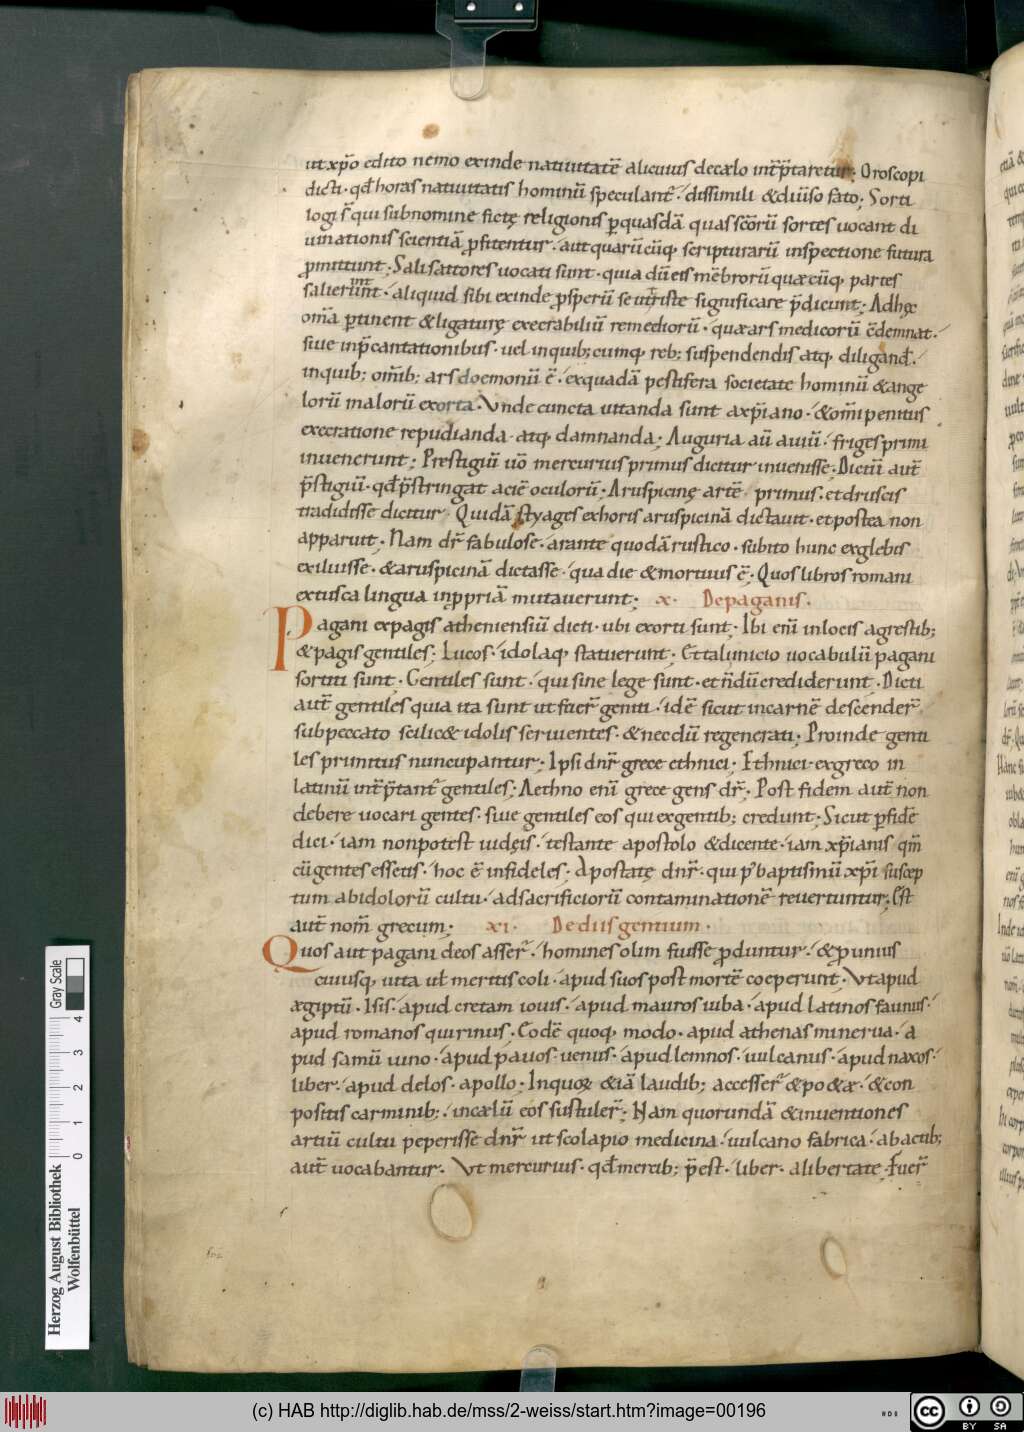 ut xp̄o edito nemo exinde natiuitatē alicuius decælo int̄p̄taretur; Oroscopi
dicti· qđ horas natiuitatis hominū speculant̄· dissimili &diūso fato; Sorti
logi s̄ qui subnomine fictę religionis ꝑquasdā quas sc̄orū sortes uocant di
uinationis scientiā ꝓfitentur· aut quarūcūq; scripturarū inspectione futura
ꝓmittunt; Salisattores uocati sunt· quia dū eis mēbrorū quæcūq; partes
salierunt· aliquid sibi exinde ꝓsperū seu triste significare p̄dicunt; Adhęc
om̄a ꝑtinent &ligaturę execrabiliū remediorū· quæ ars medicorū c̄demnat·
siue inp̄cantationibus· uel inquib; cumq; reb; suspendendis atq; diligand̄·
inquib; om̄ib; ars doemonū ē· exquadā pestifera societate hominū &ange
lorū malorū exorta· Vnde cuncta uitanda sunt axp̄iano· &om̄i penitus
execratione repudianda· atq; damnanda; Auguria aū auiū· friges primi
inuenerunt; Prestigiū ūo mercurius primus dicitur inuenisse; Dictū aut̄
p̄stigiū· qđ p̄stringat aciē oculorū; Aruspicinę artē primus· etdruscis
tradidisse dicitur· Quidā styages exhoris aruspicinā dictauit· et postea non
apparuit· Nam dr̄ fabulose· arante quodā rustico· subito hunc exglebis
exiluisse· &aruspicinā dictasse· qua die &mortuus ē· Quos libros romani
extusca lingua inꝓpriā mutauerunt; x· De paganis·
Pagani expagis atheniensiū dicti· ubi exorti sunt· Ibi eni̅ inlocis agrestib;
&pagis gentiles; Lucos· idolaq; statuerunt· Et talι inicio uocabulū pagani
sortiti sunt· Gentiles sunt· qui sine lege sunt· et n̄dū crediderunt· Dicti
aut̄ gentiles quia ita sunt ut fuer̄ geniti· idē sicut incarnē descender̄
subpeccato scilic& idolis seruientes· &necdū regenerati; Proinde genti
les primitus nuncupantur; Ipsi dnr̄ grece ethnici; Ethnici exgreco in
latinū int̄p̄tant̄ gentiles; Aethno eni̅ grece gens dr̄· Post fidem aut̄ non
debere uocari gentes· siue gentiles eos qui exgentib; credunt; Sicut ꝑ fidē
dici· iam nonpotest iudęis· testante apostolo &dicente· iam xp̄ianis qm̄
cū gentes essetis· hoc ē infideles· Apostatę dnr̄· qui p' baptismū xp̄i suscep
tum abidolorū cultu· adsacrificiorū contaminationē reuertuntur; Est
aut̄ nom̄ grecum; xi· De diis gentium·
Quos aut pagani deos asser̄· homines olim fuisse ꝓduntur· &ꝑ unius
cuiusq; uita uƚ meritis coli· apud suos post mortē coeperunt· Vt apud
ægiptū· Isis· apud cretam iouis· apud mauros iuba· apud latinos faunus·
apud romanos quirinus· Eodē quoq; modo· apud athenas minerua· a
pud samū iuno· apud pauos· uenus· apud lemnos· uulcanus· apud naxos·
liber· apud delos· apollo· Inquoꝝ &iā laudib; accesser̄ &po&æ· &con
positis carminib; incælū eos sustuler̄· Nam quorundā &inuentiones
artiū cultu peperisse dnr̄ ut scolapio medicina· uulcano fabrica· abactib;
aut̄ uocabantur· Vt mercurius· qđ mercib; p̄est· liber· alibertate· Fuer̄
Herzog August Bibliothek
Wolfenbüttel
0 1 2 3 4
Gray Scale
(c) HAB http://diglib.hab.de/mss/2-weiss/start.htm?image=00196
cc BY SA